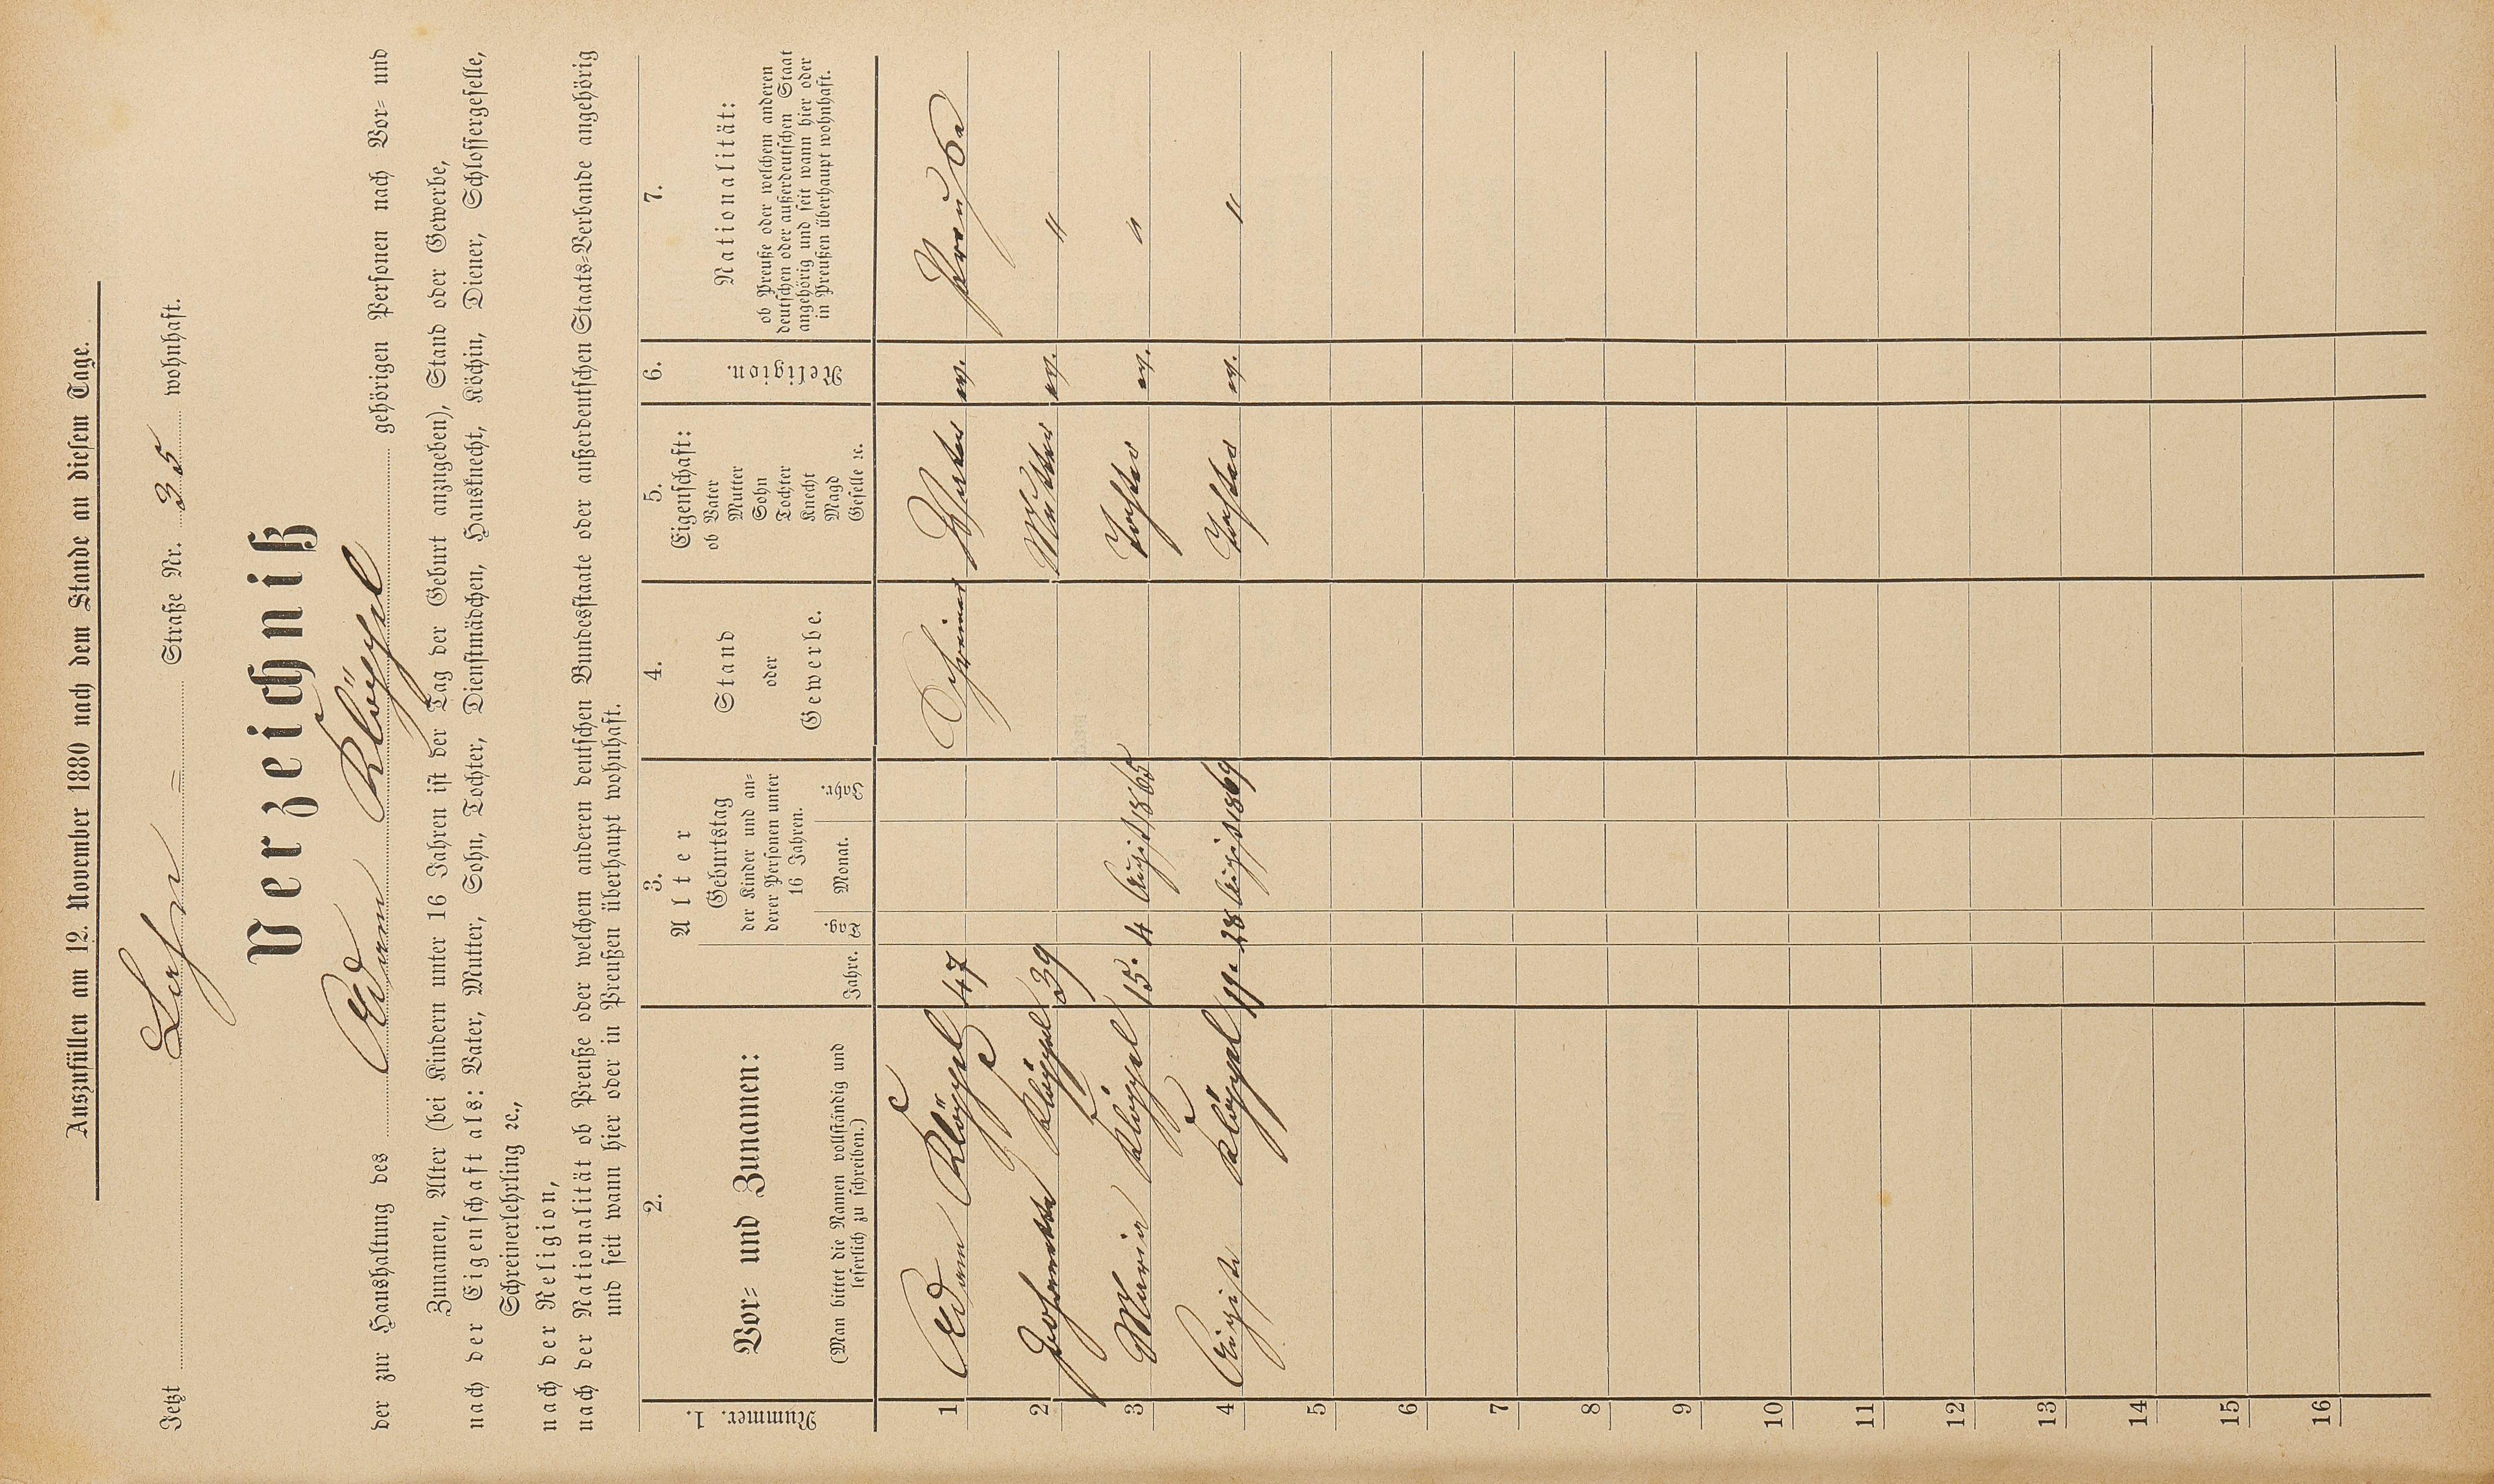 Auszufüllen am 12. November 1880 nach dem Stande an diesem Tage.
Jetzt Lahn = Straße Nr. 35 wohnhaft.
Verzeichniß
der zur Haushaltung des Adam Klöppel gehörigen Personen nach Vor- und
Zunamen, Alter (bei Kindern unter 16 Jahren ist der Tag der Geburt anzugeben), Stand oder Gewerbe,
nach der Eigenschaft als: Vater, Mutter, Sohn, Tochter, Dienstmädchen, Hausknecht, Köchin, Diener, Schlossergeselle,
Schreinerlehrling ꝛc.,
nach der Religion,
nach der Nationalität ob Preuße oder welchem anderen deutschen Bundesstaate oder außerdeutschen Staats-Verbande angehörig
und seit wann hier oder in Preußen überhaupt wohnhaft.
1.
Nummer.
2.
Vor- und Zunamen:
(Man bittet die Namen vollständig und
leserlich zu schreiben.)
3.
Alter
Geburtstag
der Kinder und an-
derer Personen unter
16 Jahren.
Jahre. Tag. Monat. Jahr.
4.
Stand
oder
Gewerbe.
5.
Eigenschaft:
ob Vater
Mutter
Sohn
Tochter
Knecht
Magd
Geselle ꝛc.
6.
Religion.
7.
Nationalität:
ob Preuße oder welchem anderen
deutschen oder außerdeutschen Staat
angehörig und seit wann hier oder
in Preußen überhaupt wohnhaft.
1 Adam Klöppel 47 Schreiner Vater ev. Preuße
2 Johanette Klöppel 39 Mutter ev. "
3 Maria Klöppel 15. 4 August 1865 Tochter ev. "
4 Auguste Klöppel 11. 28 August 1869 Tochter ev. "
5
6
7
8
9
10
11
12
13
14
15
16